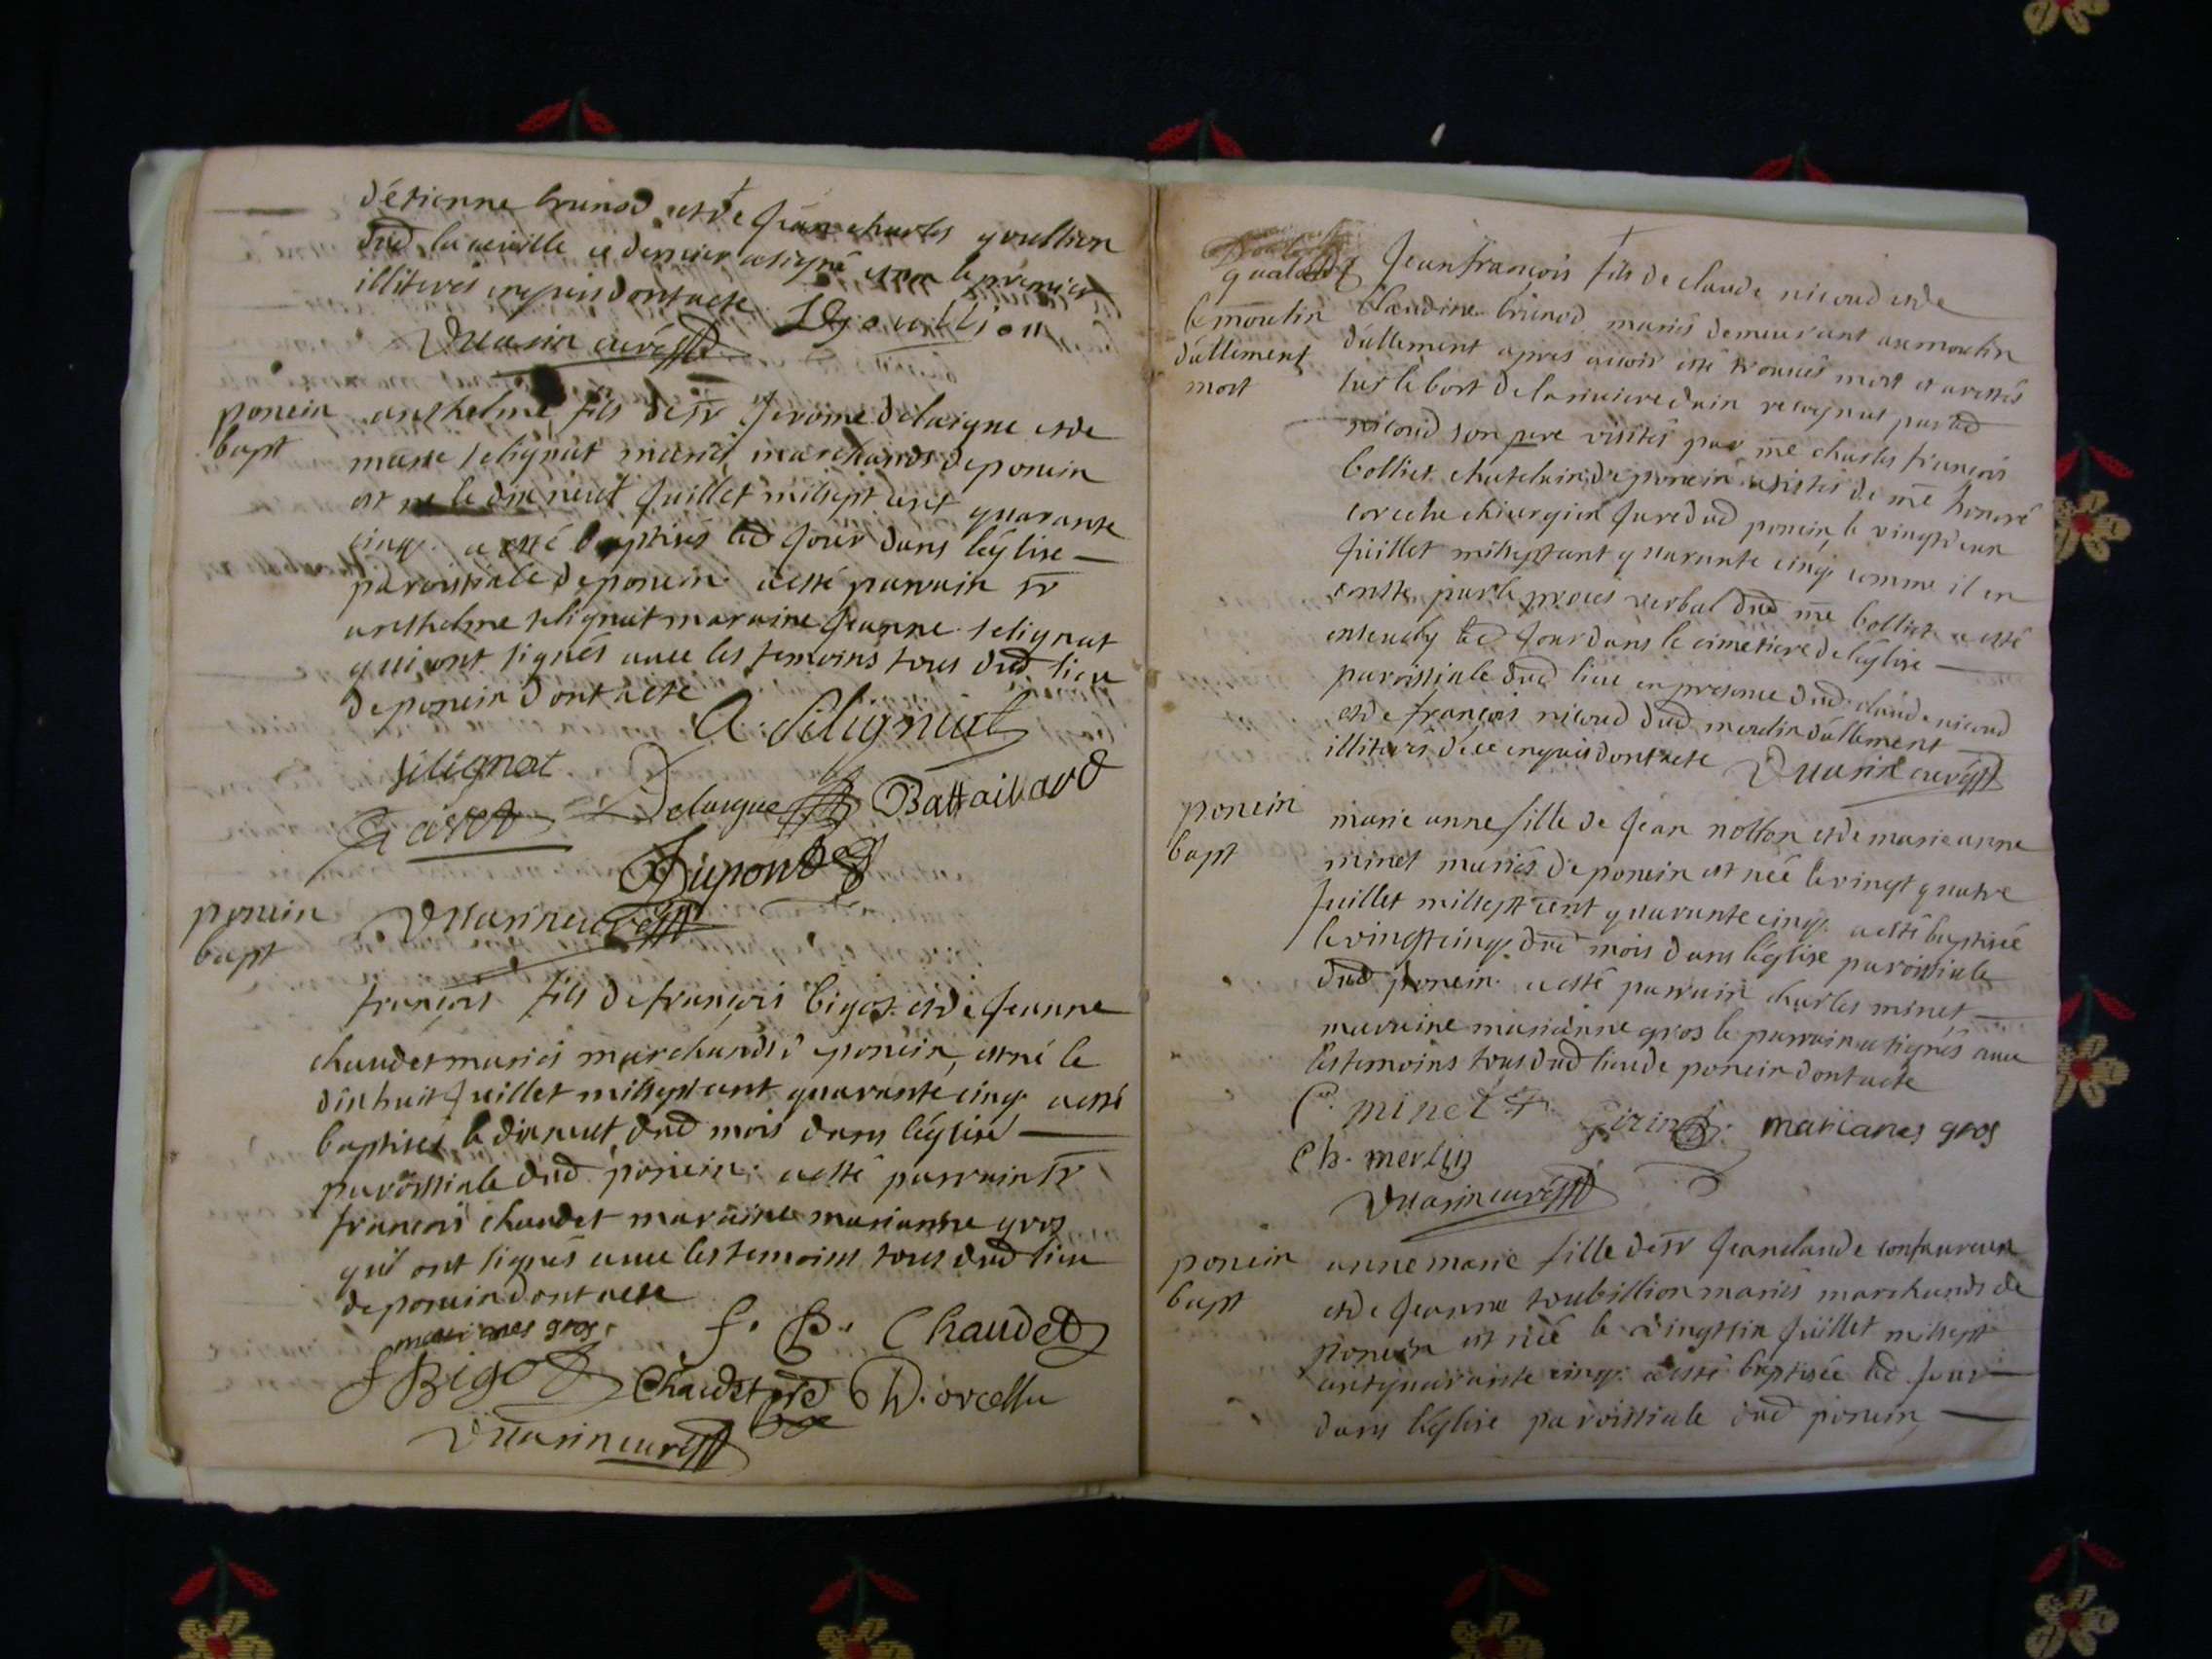 d'étienne brunod et de Jean charles goullion
dud la ceuille ce dernier a signé et non le premier
illiteres enquis dont acte DGoullion
Duarin curé
ponein
bapt
anthelme fils de sr Jerome delaigne et de
marie selignat mariés marchands de ponein
est né le dix neuf Juillet mil sept cent quarante
cinq. a esté baptisés led Jour dans léglise
paroissiale de ponein a esté parrain sr
anthelme selignat maraine Jeanne selignat
qui ont signés avec les temoins tous dud lieu
de ponein dont acte
A. Selignat
selignat
Delaigue Battaillard
Dupond
ponein
bapt
Duarin curé
françois fils de francois bigot et de Jeanne
chaudet mariés marchands d ponein, est né le
dix huit Juillet mil sept cent quarante cinq a esté
baptisés le dix neuf dud mois dans léglise
paroissiale dud ponein. a esté parrain sr
francois chaudet maraine marianne gros
qui ont signés avec les temoins tous dud lieu
de ponein dont acte
marianes gros
f. Chaudet
f Bigot Chaudet D. orcellu
Duarin curé
le moulin
dallement
mort
Jean francois fils de claude nicoud et de
claudine brunod mariés demeurant au moulin
dallement apres avoir esté trouvés mort et arestés
sur le bort de la riviere dain recognut par led
nicoud son pere visités par me charles francois
bolliet chatelain de ponein asistés de me honoré
chirurgien Juré dud ponein, le vingt deux
Juillet mil sept cent quarante cinq comme il en
conste par le proces verbal dud me bolliet a esté
ensevely led Jour dans le cimetiere de léglise
paroissiale dud lieu en presence dud claude nicoud
et de francois nicoud dud moulin dallement
illiterés de ce enquis dont acte Duarin curé
ponein
bapt
marie anne fille de Jean nollon et de marie anne
minet mariés de ponein est née le vingt quatre
Juillet mil sept cent quarante cinq. a esté baptisée
le vingt cinq dud mois dans léglise paroissiale
dud ponein. a esté parrain charles minet
maraine marianne gros le parrain a signés avec
les temoins tous dud lieu de ponein dont acte
C. minet Girin marianes gros
Ch. merlin
Duarin curé
ponein
bapt
anne marie fille de sr Jean claude confavreux
et de Jeanne toubillion mariés marchands de
ponein est née le vingt six Juillet mil sept
cent quarante cinq. a esté baptisée led Jour
dans léglise paroissiale dud ponein,